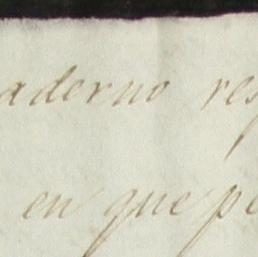 aderno res
en que pe